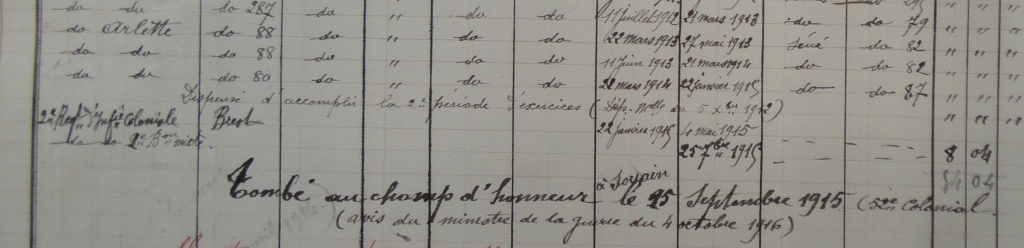 do 287 do " do do 11 juillet 1912 21 mars 1913 do do 79 " "
do Arlette do 88 do " do do 22 mars 1913 27 mai 1913 Séné do 82 " "
do do do 88 do " do do 11 juin 1913 21 mars 1914 do do 82 " "
do do do 80 do " do do 22 mars 1914 22 janvier 1915 do do 87 " "
Dispensé d'accomplir la 2e période d'exercices (Dép. Mlle du 5 Xbre 1912) " " "
2e Regt d'Infie Coloniale Brest 22 janvier 1915 4 mai 1915 " " "
do do 2e Bon mixte. 25 7bre 1915 8 04
54 04
Tombé au champ d'honneur à Souain le 25 Septembre 1915 (5me Colonial.
(avis du ministre de la guerre du 4 octobre 1916)